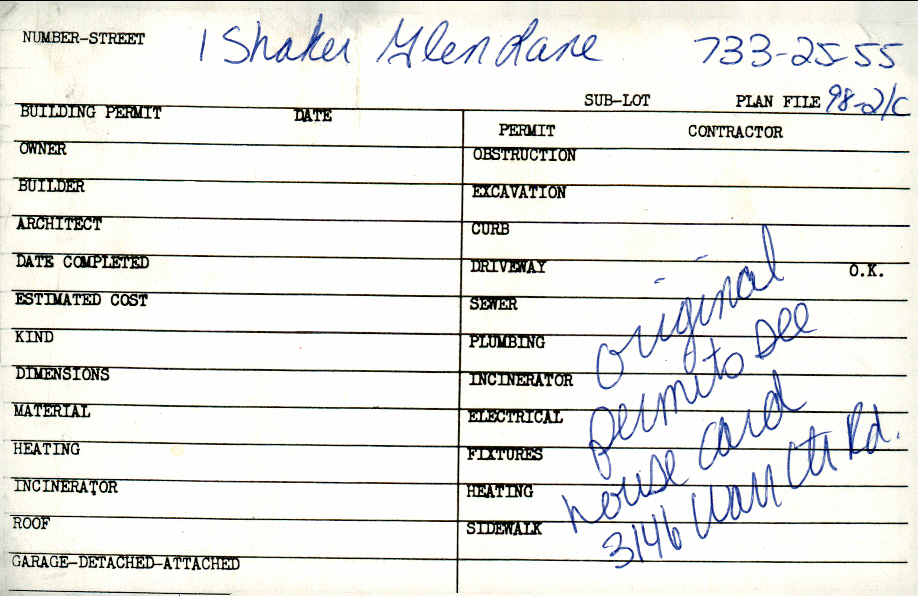 NUMBER-STREET 1 Shaker Glen Lane 733-25-55
SUB-LOT PLAN FILE 98-21C
BUILDING PERMIT DATE
PERMIT CONTRACTOR
OWNER
OBSTRUCTION
BUILDER
EXCAVATION
ARCHITECT
CURB
DATE COMPLETED
DRIVEWAY O.K.
ESTIMATED COST
SEWER
KIND
PLUMBING
DIMENSIONS
INCINERATOR
MATERIAL
ELECTRICAL
HEATING
FIXTURES
INCINERATOR
HEATING
ROOF
SIDEWALK
GARAGE-DETACHED-ATTACHED
original
permits see
house card
3146 Warr Ctr Rd.